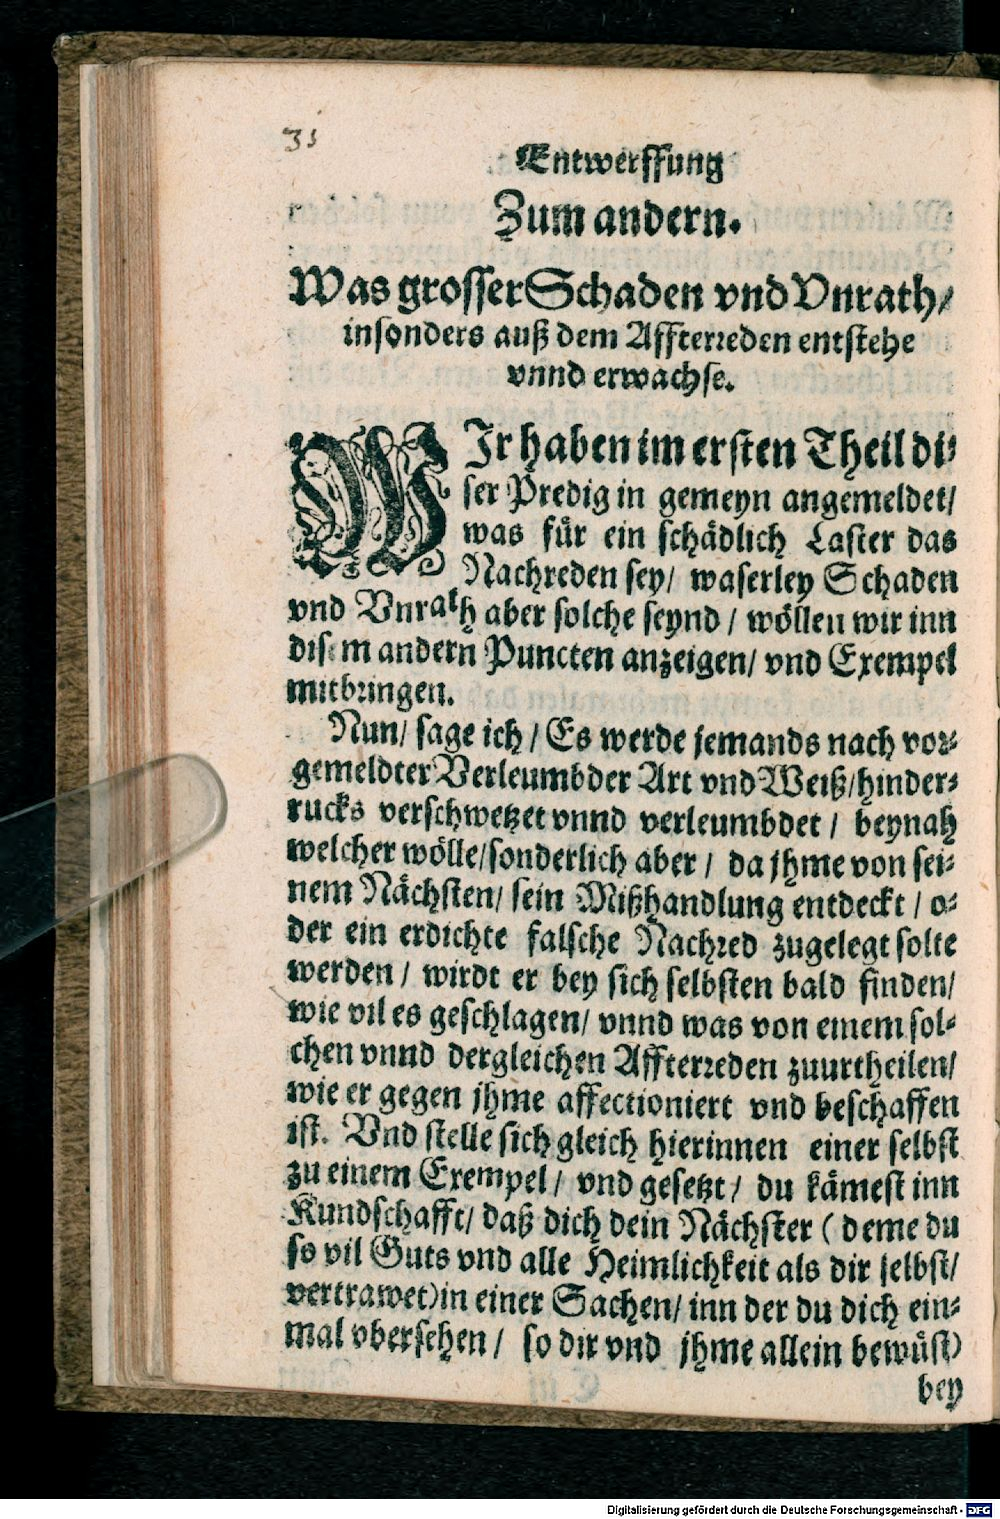 31
Entwerffung
Zum andern.
Was grosser Schaden vnd Vnrath/
insonders auß dem Affterreden entstehe
vnnd erwachse.
WIr haben im ersten Theil di⸗
ser Predig in gemeyn angemeldet/
was für ein schädlich Laster das
Nachreden sey/ waserley Schaden
vnd Vnrath aber solche seynd / wöllen wir inn
disem andern Puncten anzeigen/ vnd Exempel
mitbringen.
Nun/ sage ich / Es werde jemands nach vor⸗
gemeldter Verleumbder Art vnd Weiß/hinder⸗
rucks verschwetzet vnnd verleumbdet / beynah
welcher wölle/sonderlich aber / da jhme von sei⸗
nem Nächsten/ sein Mißhandlung entdeckt / o⸗
der ein erdichte falsche Nachred zugelegt solte
werden / wirdt er bey sich selbsten bald finden/
wie vil es geschlagen/ vnnd was von einem sol⸗
chen vnnd dergleichen Affterreden zuurtheilen/
wie er gegen jhme affectioniert vnd beschaffen
ist. Vnd stelle sich gleich hierinnen einer selbst
zu einem Exempel / vnd gesetzt / du kämest inn
Kundschafft/ daß dich dein Nächster ( deme du
so vil Guts vnd alle Heimlichkeit als dir selbst/
vertrawet)in einer Sachen/ inn der du dich ein⸗
mal vbersehen / so dir vnd jhme allein bewüst)
bey
Digitalisierung gefördert durch die Deutsche Forschungsgemeinschaft - DFG